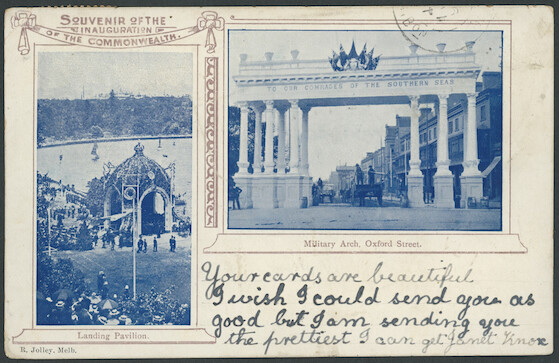 SOUVENIR OF THE
INAUGURATION
OF THE COMMONWEALTH.
TO OUR COMRADES OF THE SOUTHERN SEAS
Military Arch, Oxford Street.
Your cards are beautiful
I wish I could send you as
good but I am sending you
the prettiest I can get Janet Knox
Landing Pavilion.
R. Jolley, Melb.